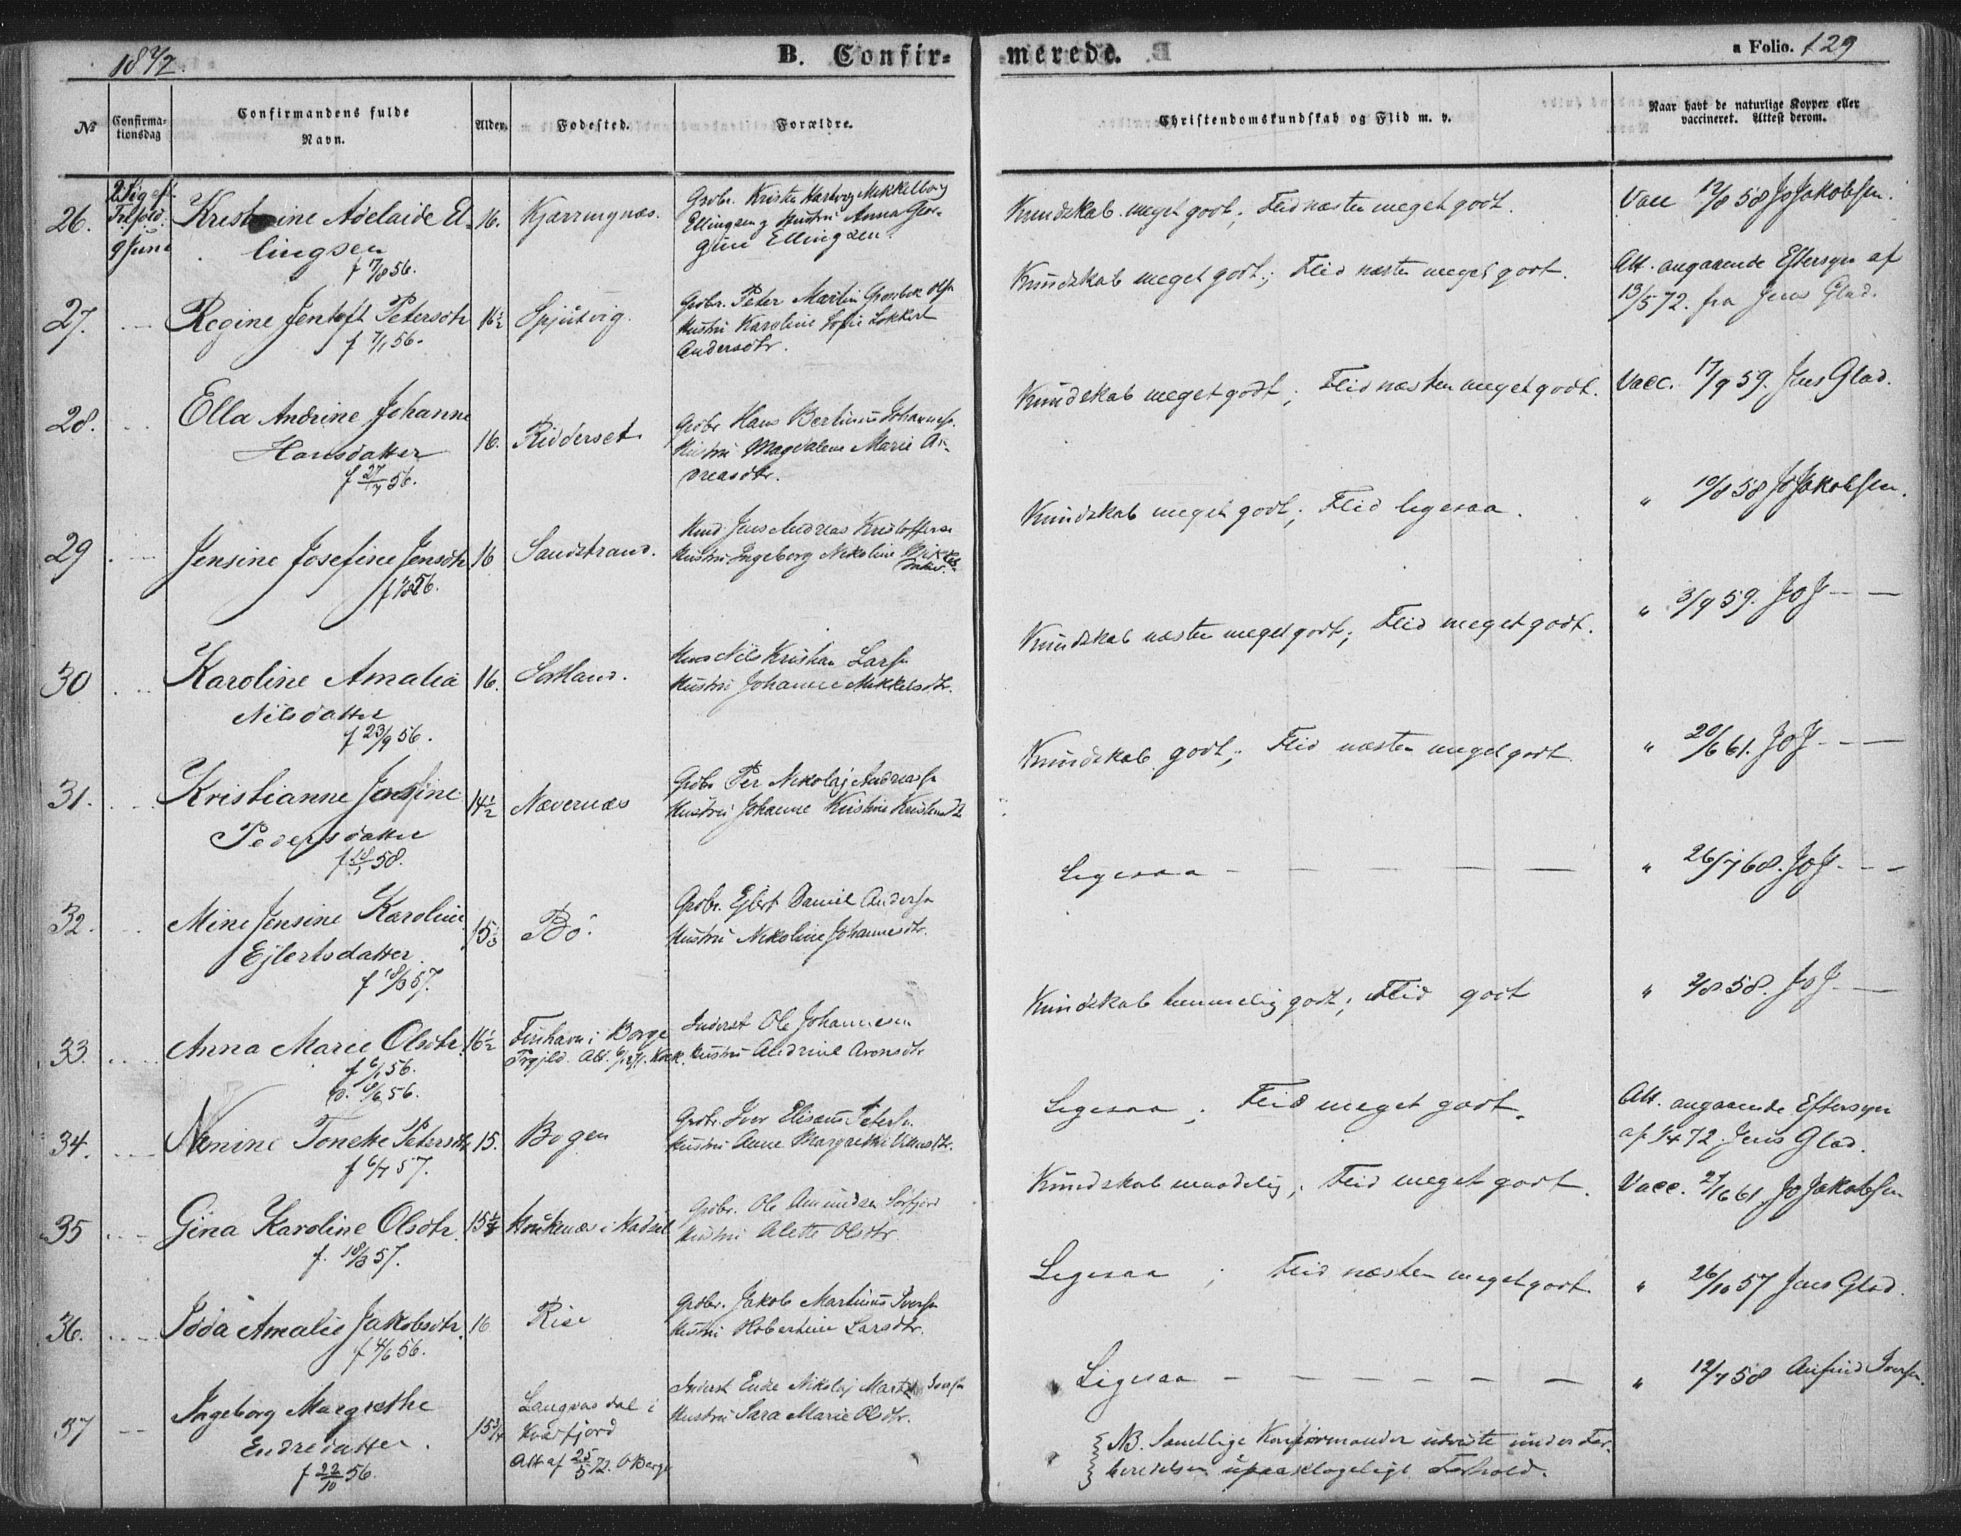 18 7/2.
B. Confir-
merede.
a Folio. 129
No
Confirma-
tionsdag
Confirmandens fulde
Navn.
Alder.
Fødested.
Forældre.
Christendomskundskab og Flid m. v.
Naar havt de naturlige Kopper eller
vaccineret. Attest derom.
26.
2 Sg eft.
Trefold.
9 Juni
Kristine Adelaide El-
lingsen
f 17/8 56.
16.
Kjærringnæs.
Grdbr. Krister Hartvig Mekkelborg
Ellingsen g Hustru Anna Geor-
gine Ellingsen.
Kundskab meget godt; Flid næsten meget godt.
Vacc 12/8 58 JoJakobsen.
27.
Regine Jentoft Petersdtr
f 7/1 56.
16 1/2
Spjutvig.
Grdbr. Peter Martin Olsn
Hustru Karoline Sofie Lokkert
Andersdtr.
Kundskab meget godt; Flid næsten meget godt.
Att. angaaende Eftersyn af
13/5 72. fra Jens Glad.
28.
Ella Andrine Johanna
Hansdatter
f 27/7 56.
16.
Ridderset
Grdbr Hans Bertinus Johannesn.
Hustru Magdalena Marie An-
dreasdtr.
Kundskab meget godt; Flid næsten meget godt.
Vacc. 17/9 59. Jens Glad.
29
Jensine Josefine Jensdtr
16
Sandstrand.
Hmd. Jens Andreas Kristoffersen
Hustru Ingeborg Nekoline
Kundskab meget godt; Flid ligesaa.
" 10/8 58 JoJakobsen.
30
Karoline Amalia
Nilsdatter
f 23/9 56.
16.
Sortland.
Nils Kristian Larsn
Hustru Johanne Mekkelsdtr.
Kundskab næsten meget godt; Flid meget godt.
" 3/9 59. JoJ - -
31.
Kristianne Josefine
Pedersdatter
14 1/2
Nævernæs
Grdbr Per Nekolaj Andreasn
Hustru Johanne Kristine
Kundskab godt; Flid næsten meget godt
" 20/6 61. JoJ - -
32.
Mine Jensine Karoline
Ejlertsdatter.
f 18/3 57.
Bø.
Grdbr. Ejlert Daniel Andersn
Hustru Nekoline Johannesdtr.
Ligesaa - - - - - -
" 26/7 68. JoJ - -
33.
Anna Marie Olsdtr.
f 6/1 56.
D. 8/6 56.
16 1/2
i Borge
Inderst Ole Johannesen
Hustru Aronsdtr
Kundskab temmelig godt; Flid godt
" 58. JoJ -
34.
Nenine Toneke Petersdtr
f 6/7 57.
15.
Bogen
Grdbr. Iver Elisæus Petersn
Hustru Anne Margrethe
Ligesaa; Flid meget godt.
Att. angaaende Eftersyn
af 72 Jens Glad.
35
Gina Karoline Olsdtr.
f. 18/3 57.
Houkenæs i Hadsel
Grdbr. Ole Amundsen Sørfjord
Hustru Alette Olsdtr.
Kundskab maadelig; Flid meget godt.
Vacc. 27/6 61 JoJakobsen
36.
Idda Amalie Jakobsdtr.
f 4/6 56.
16
Rise
Grdbr. Jakob Martinus Iversn
Hustru Hobertine Larsdtr.
Ligesaa; Flid næsten meget godt.
" 26/10 57 Jens Glad.
37
Ingeborg Margrethe
Endredatter.
f 22/10 56.
15 3/4
Langvasdal i
Kvæfjord
Att af 25/5 72.
Inderst Endre Nikolaj Iversn
Hustru Sara Marie Olsdtr.
Ligesaa - - - - - -
" 12/7 58 Anfind Iversn.
NB. Samtlige Konfirmander udviste under For-
beredelsen upaaklageligt Forhold.